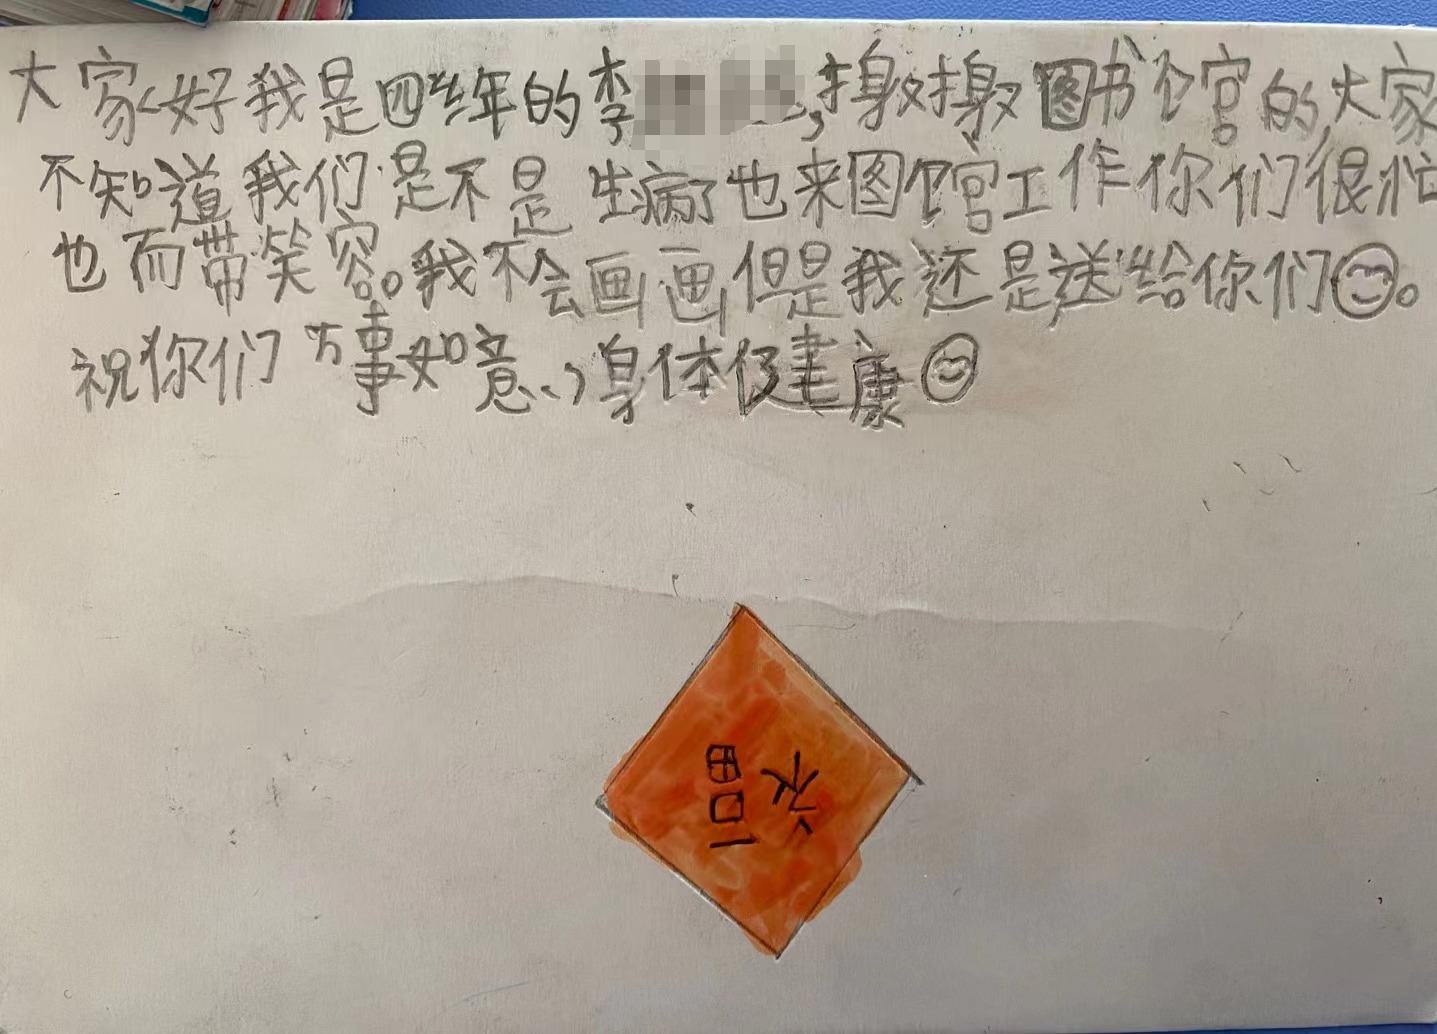 大家好我是四年的李,谢谢图书馆的,大家
不知道我们是不是生病了也来图馆工作你们很忙
也而带笑容。我不会画画但是我还是送给你们。
祝你们万事如意、,身体健康
福